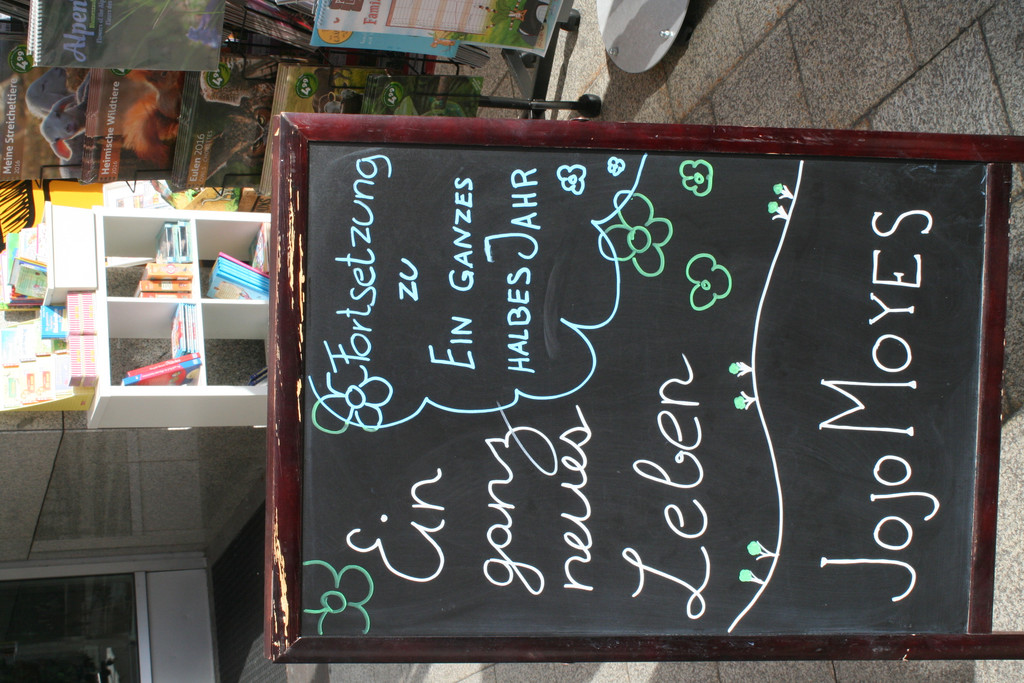 Fortsetzung
zu
EIN GANZES
HALBES JAHR
Ein
ganz
neues
Leben
JoJo MOYES
Alpen
Meine Streicheltiere
Heimische Wildtiere
Eulen 2016
4,99
4,99
4,99
4,99